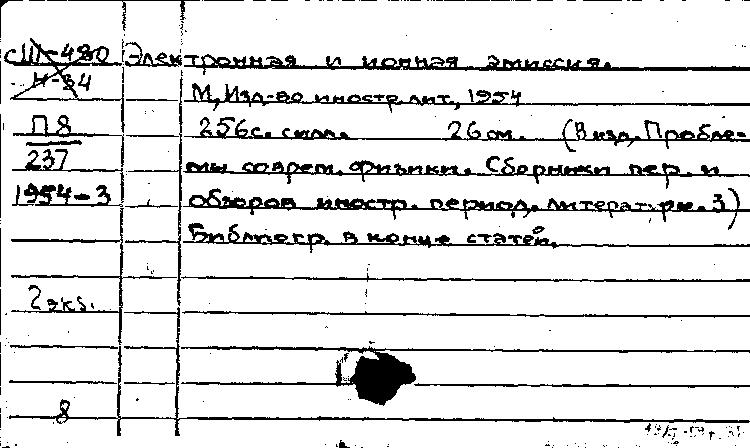 СШ-480 Электронная и ионная эмиссия.
И-34
М., Изд-во иностр. лит., 1954
П8 256с. с илл. 26 см. (В изд. Пробле-
237 мы соврем. физики. Сборники пер. и
1954-3 обзоров иностр. период. литературы. 3)
Библиогр. в конце статей.
2 экз.
8